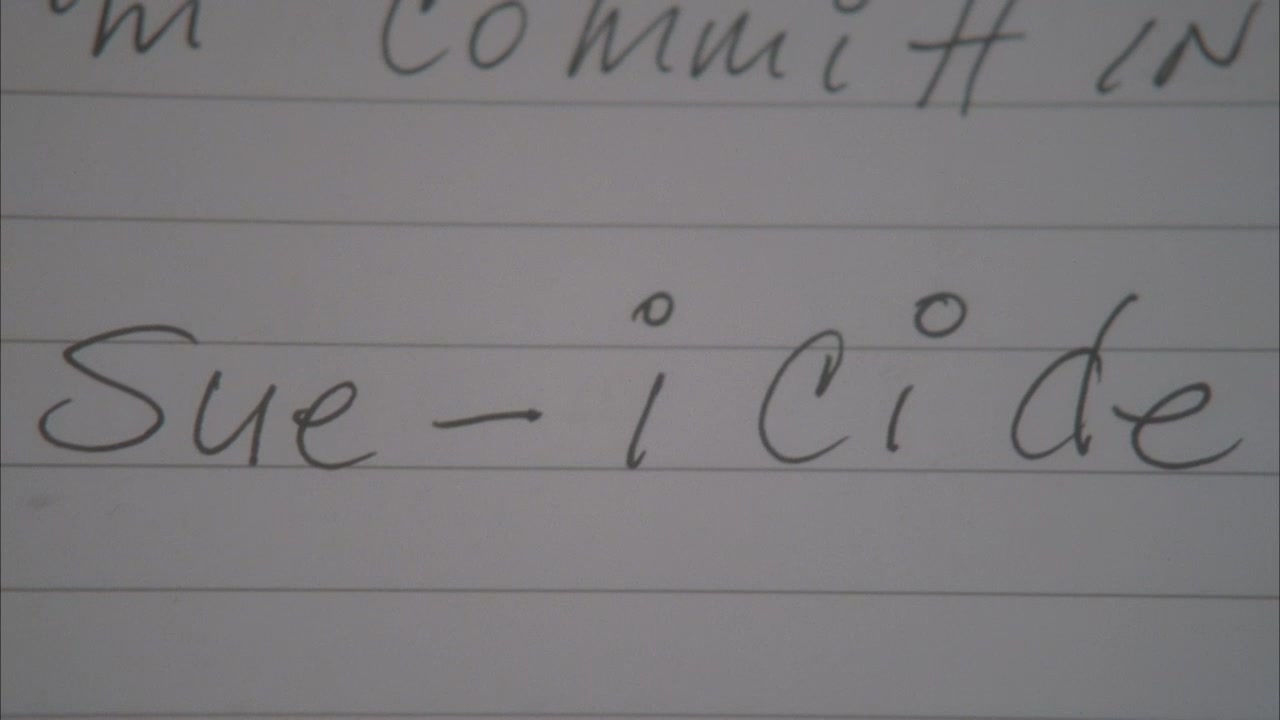 m CommiH IN
Sue-iCide